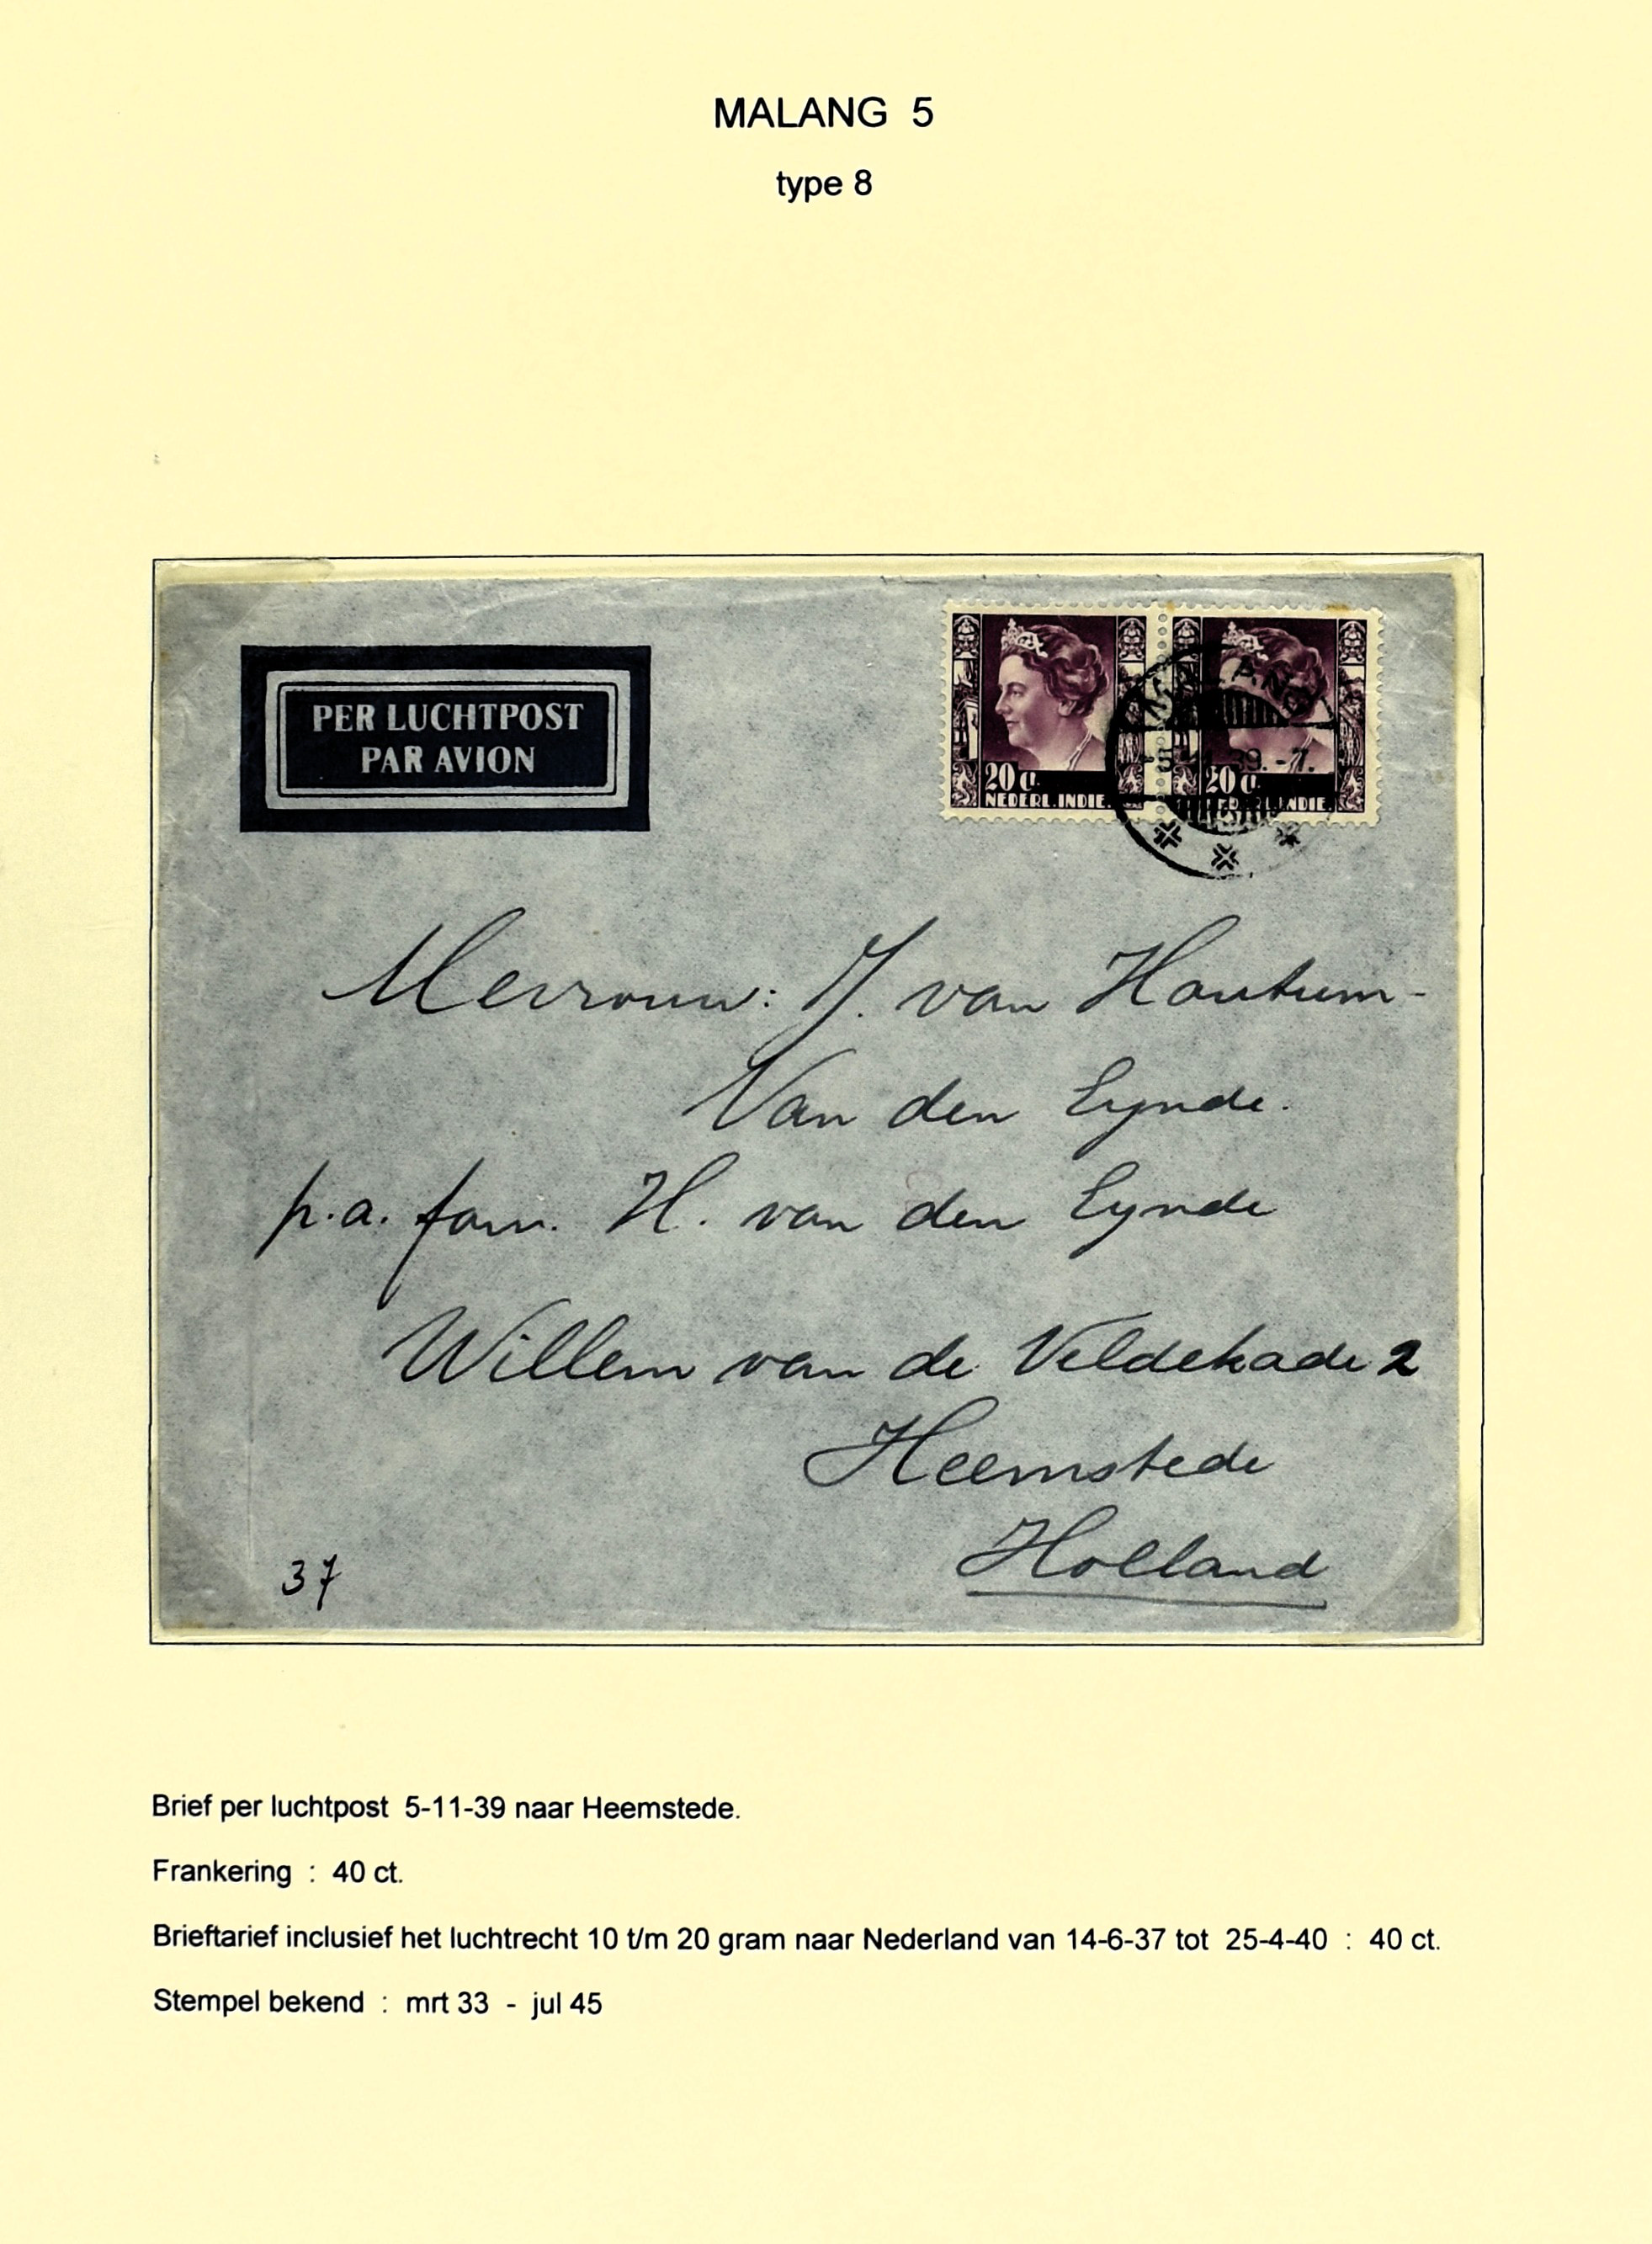 MALANG 5
type 8
PER LUCHTPOST
PAR AVION
20 ct.
NEDERL. INDIE.
20 ct.
NEDERL. INDIE.
MALANG
39.-7.
Mevrouw: J. van Houtum-
Van den Eynde.
p.a. fam. H. van den Eynde
Willem van de Veldekade 2
Heemstede
Holland
37
Brief per luchtpost 5-11-39 naar Heemstede.
Frankering : 40 ct.
Brieftarief inclusief het luchtrecht 10 t/m 20 gram naar Nederland van 14-6-37 tot 25-4-40 : 40 ct.
Stempel bekend : mrt 33 - jul 45